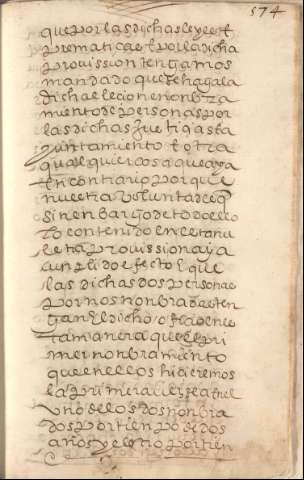 574
que por las dichas leyes E
prematicas E por la dicha
prouission tengamos
mandado que se haga la
dicha elecion e nonbra
miento de personas por
las dichas Jueti q asta
yuntamiento E otra
qualquier cosa que aya
En contrario por que
nuestra Voluntad es q
sin enbargo de todo ello
lo contenido en esta nu
estra prouission aya
cunplido efecto E que
las dichas dos personas
por nos nonbradas ten
gan El dicho oficio en es
ta manera que el pri
mer nonbramiento
que en ellos hicieremos
la primera
Uno de los dos nonbra
dos por tienpo de dos
años y el otro por tien